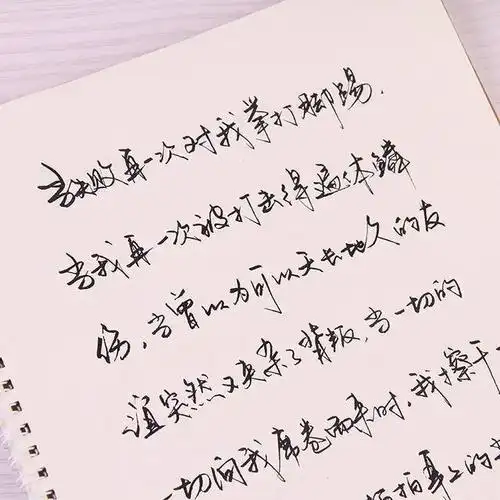 当失败再一次对我拳打脚踢.
当我再一次被打击得遍体鳞
伤,当曾以为可以天长地久的友
谊突然又夹杂了背叛,当一切的
一切向我席卷而来时,我擦干
拍上的